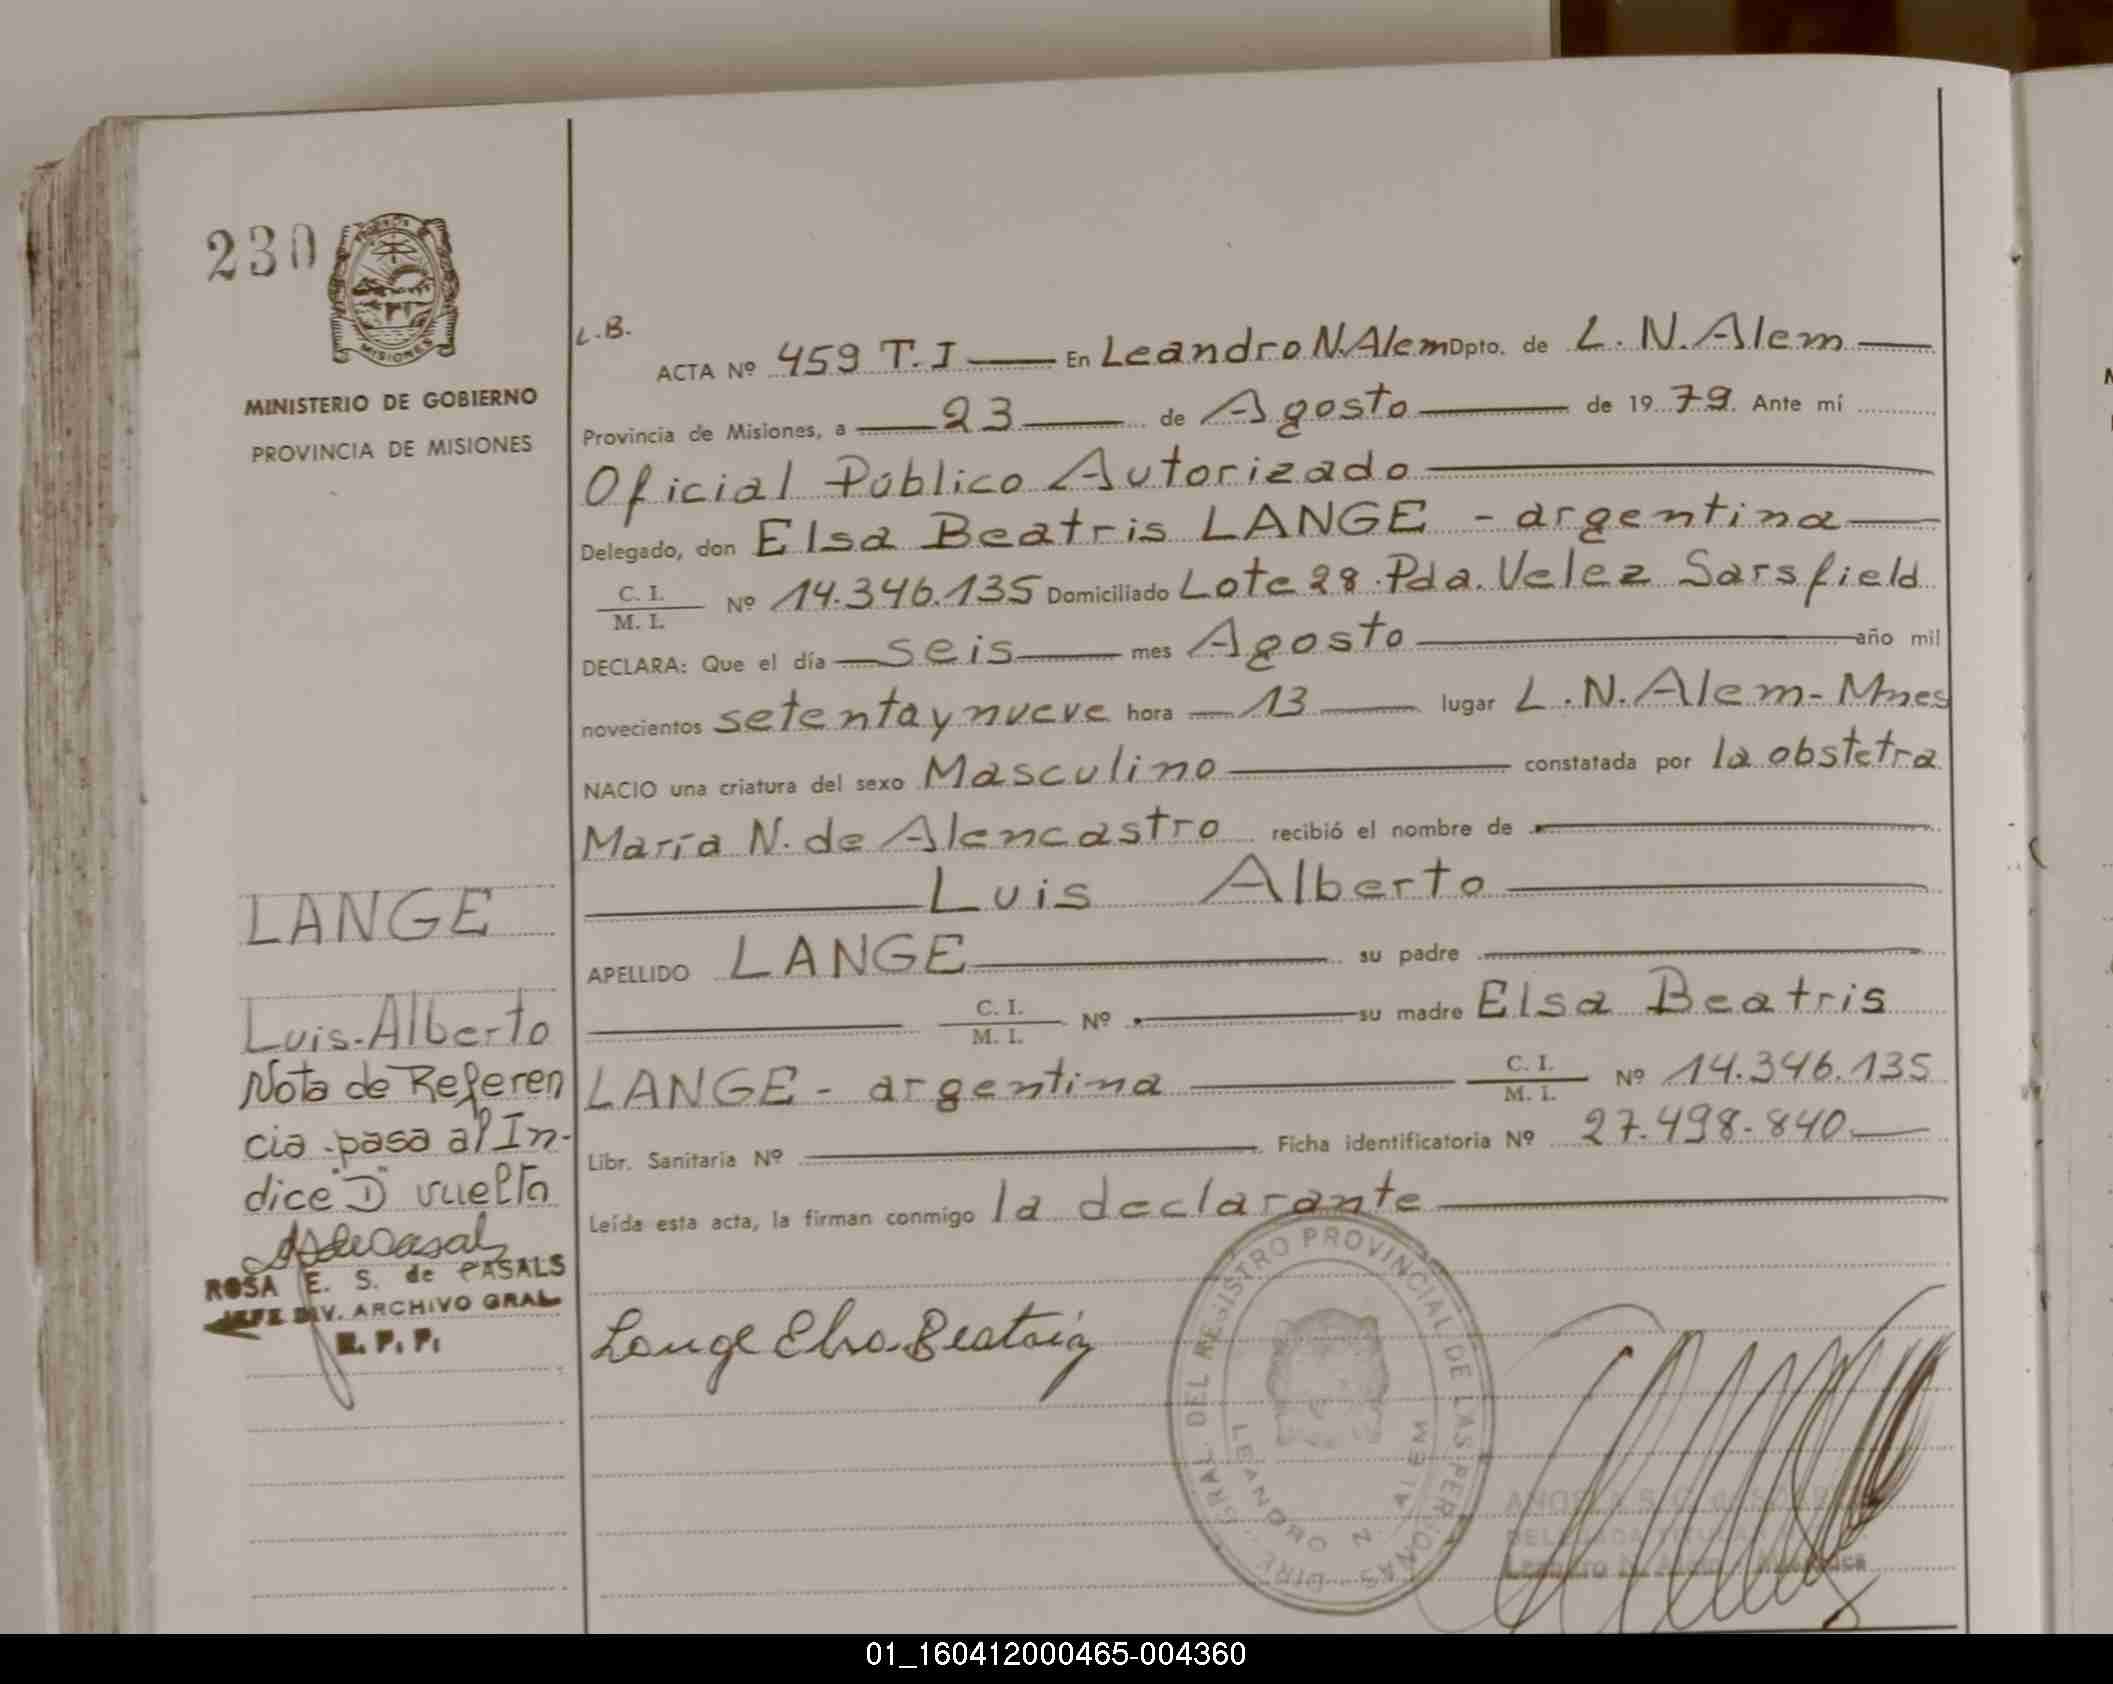 230
MISIONES
MINISTERIO DE GOBIERNO
PROVINCIA DE MISIONES
LANGE
Luis-Alberto
Nota de Referen
cia-pasa al In-
dice "D" vuelto
ROSA E. S. de CASALS
JEFE DIV. ARCHIVO GRAL
R. P. P.
L.B.
ACTA Nº 459 T.I En Leandro N.Alem Dpto. de L.N.Alem
Provincia de Misiones, a 23 de Agosto de 1979. Ante mí
Oficial Público Autorizado
Delegado, don Elsa Beatris LANGE - argentina
C. I. / M. I. Nº 14.346.135 Domiciliado Lote 28.Pda.Velez Sarsfield
DECLARA: Que el día seis mes Agosto año mil
novecientos setenta y nueve hora 13 lugar L.N.Alem-Mnes
NACIO una criatura del sexo Masculino constatada por la obstetra
María N. de Alencastro recibió el nombre de
Luis Alberto
APELLIDO LANGE su padre
C. I. / M. I. Nº su madre Elsa Beatris
LANGE - argentina C. I. / M. I. Nº 14.346.135
Libr. Sanitaria Nº Ficha identificatoria Nº 27.498.840
Leída esta acta, la firman conmigo la declarante
Lange Elsa Beatriz
DIRE. GRAL. DEL REGISTRO PROVINCIAL DE LAS PERSONAS
LEANDRO N. ALEM
DELEGADA TITULAR
Leandro N. Alem
01_160412000465-004360